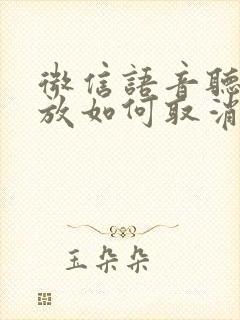 微信語音聽
放如何取消
玉朵朵